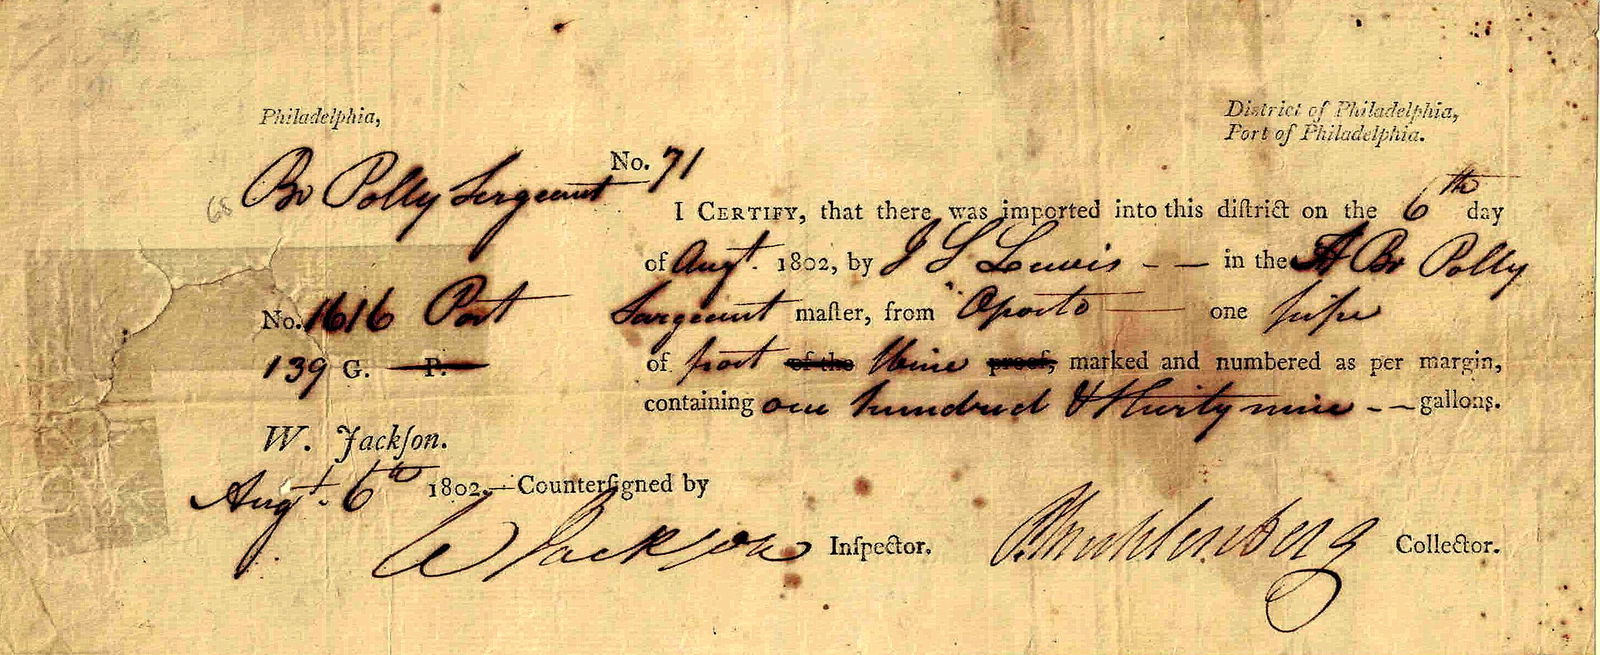 Philadelphia,
District of Philadelphia,
Port of Philadelphia.
No. 71
Br Polly Sergeant
68
I CERTIFY, that there was imported into this diſtrict on the 6th day
of Augt. 1802, by J S Lewis -- in the A Br Polly
Sergeant maſter, from Oporto — one pipe
of port of the Wine proof, marked and numbered as per margin,
containing one hundred & thirty nine -- gallons.
No. 1616 Port
139 G. P.
W. Jackſon.
Augt. 6th 1802.—Counterſigned by
W Jackson Inſpector.
P Muhlenberg Collector.